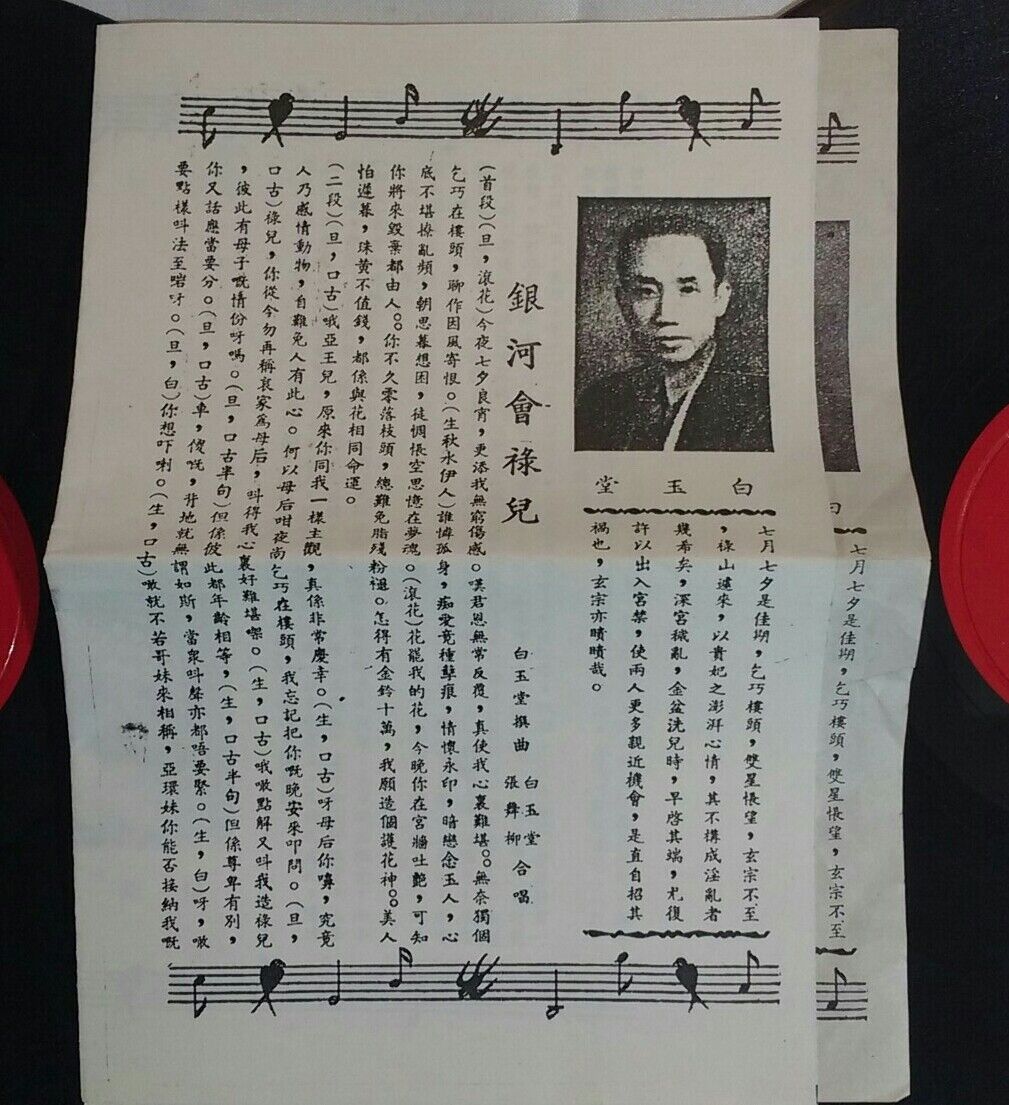 白玉堂
七月七夕是佳期，乞巧樓頭，雙星悵望，玄宗不至
，祿山遽來，以貴妃之澎湃心情，其不構成淫亂者
幾希矣，深宮穢亂，金盆洗兒時，早啓其端，尤復
許以出入宮禁，使兩人更多親近機會，是直自招其
禍也，玄宗亦瞶瞶哉。
銀河會祿兒
白玉堂撰曲 白玉堂 張舞柳 合唱
(首段)(旦，滾花)今夜七夕良宵，更添我無窮傷感。嘆君恩無常反覆，真使我心裏難堪。。無奈獨個
乞巧在樓頭，聊作因風寄恨。(生秋水伊人)誰憐孤身，痴愛竟種孽痕，情懷永印，暗戀念玉人，心
底不堪撩亂頻，朝思暮想困，徒惆悵空思憶在夢魂。(滾花)花罷我的花，今晚你在宮牆吐艷，可知
你將來毀棄都由人。。你不久零落枝頭，總難免脂殘粉褪。怎得有金鈴十萬，我願造個護花神。。美人
怕遲暮，珠黃不值錢，都係與花相同命運。
(二段)(旦，口古)哦亞王兒，原來你同我一樣主觀，真係非常慶幸。(生，口古)呀母后你嚊，究竟
人乃感情動物，自難免人有此心。何以母后咁夜尚乞巧在樓頭，我忘記把你嘅晚安來叩問。(旦，
口古)祿兒，你從今勿再稱哀家為母后，叫得我心裏好難堪㗎。(生，口古)哦噉點解又叫我造祿兒
，彼此有母子嘅情份呀嗎。(旦，口古半句)但係彼此都年齡相等，(生，口古半句)但係尊卑有別，
你又話應當要分。(旦，口古)車，傻嘅，背地就無謂如斯，當衆叫聲亦都唔要緊。(生，白)呀，噉
要點樣叫法至啱呀。(旦，白)你想吓喇。(生，口古)噉就不若哥妹來相稱，亞環妹你能否接納我嘅
白
七月七夕是佳期，乞巧樓頭，雙星悵望，玄宗不至